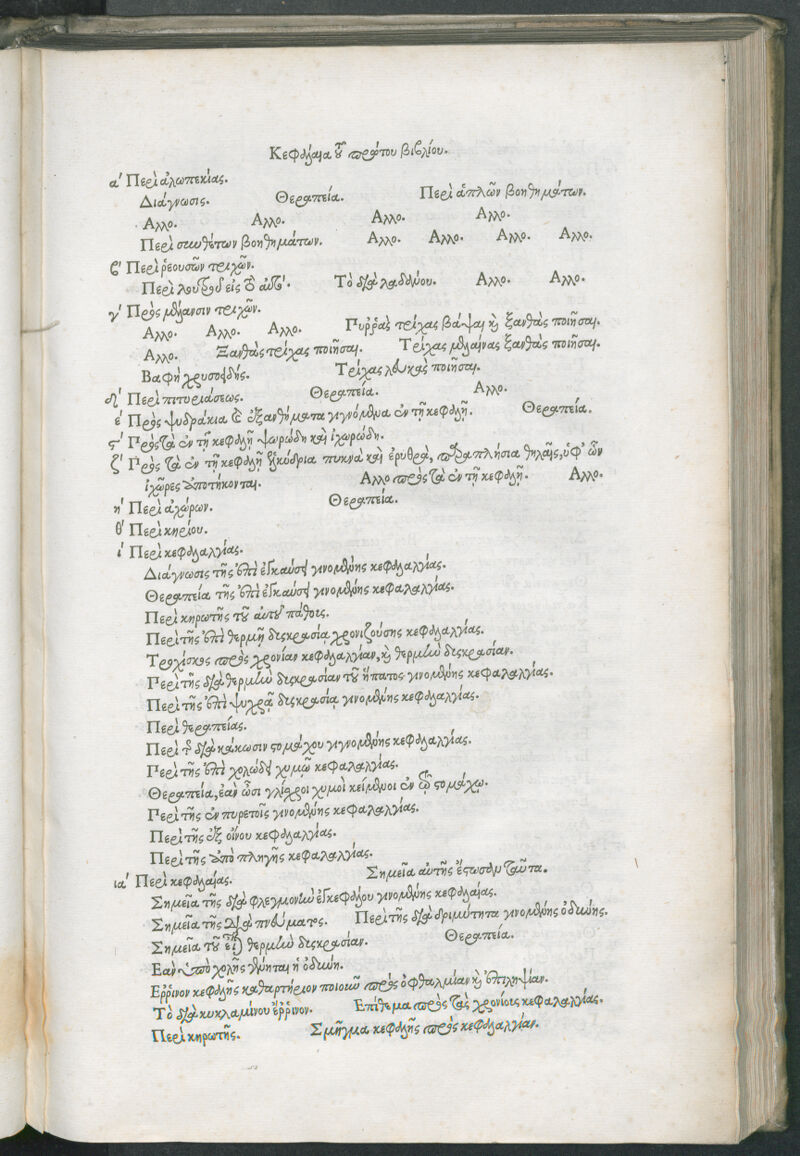 Κεφάλαια τοῦ πρώτου βιβλίου.
α´ Περὶ ἀλωπεκίας.
Διάγνωσις. Θεραπεία. Περὶ ἁπλῶν βοηθημάτων.
Αλλο. Αλλο. Αλλο. Αλλο.
Περὶ συνθέτων βοηθημάτων. Αλλο. Αλλο. Αλλο. Αλλο.
β´ Περὶ ῥεουσῶν τριχῶν.
Περὶ λουτροῦ εἰς τὸ αὐτό. Τὸ διὰ λαδάνου. Αλλο. Αλλο.
γ´ Πρὸς μέλανσιν τριχῶν.
Αλλο. Αλλο. Αλλο. Πυῤῥὰς τρίχας βάψαι καὶ ξανθὰς ποιῆσαι.
Αλλο. Ξανθὰς τρίχας ποιῆσαι. Τρίχας μελαίνας ξανθὰς ποιῆσαι.
Βαφὴ χρυσοειδής. Τρίχας λευκὰς ποιῆσαι.
δ´ Περὶ πιτυριάσεως. Θεραπεία. Αλλο.
ε´ Πρὸς ψυδράκια καὶ ἐξανθήματα γιγνόμενα ἐν τῇ κεφαλῇ. Θεραπεία.
ϛ´ Πρὸς τὰ ἐν τῇ κεφαλῇ ψωρώδη καὶ ἰχωρώδη.
ζ´ Πρὸς τὰ ἐν τῇ κεφαλῇ ἑλκύδρια πυκνὰ καὶ ἐρυθρὰ, παραπλήσια θηλαῖς, ὑφ' ὧν
ἰχῶρες ἀποτήκονται. Αλλο πρὸς τὰ ἐν τῇ κεφαλῇ. Αλλο.
η´ Περὶ ἀχώρων. Θεραπεία.
θ´ Περὶ κηρίου.
ι´ Περὶ κεφαλαλγίας.
Διάγνωσις τῆς ἐπὶ ἐγκαύσει γινομένης κεφαλαλγίας.
Θεραπεία τῆς ἐπὶ ἐγκαύσει γινομένης κεφαλαλγίας.
Περὶ κηρωτῆς τοῦ αὐτοῦ πάθους.
Περὶ τῆς ἐπὶ θερμῇ δυσκρασίᾳ χρονιζούσης κεφαλαλγίας.
Τροχίσκος πρὸς χρονίαν κεφαλαλγίαν, καὶ θερμὴν δυσκρασίαν.
Περὶ τῆς διὰ θερμὴν δυσκρασίαν τοῦ ἥπατος γινομένης κεφαλαλγίας.
Περὶ τῆς ἐπὶ ψυχρᾷ δυσκρασίᾳ γινομένης κεφαλαλγίας.
Περὶ θεραπείας.
Περὶ τῆς διὰ κάκωσιν στομάχου γιγνομένης κεφαλαλγίας.
Περὶ τῆς ἐπὶ χολώδει χυμῷ κεφαλαλγίας.
Θεραπεία, ἐὰν ὦσι γλίσχροι χυμοὶ κείμενοι ἐν τῷ στομάχῳ.
Περὶ τῆς ἐν πυρετοῖς γινομένης κεφαλαλγίας.
Περὶ τῆς ἐξ οἴνου κεφαλαλγίας.
Περὶ τῆς ἀπὸ πληγῆς κεφαλαλγίας.
ια´ Περὶ κεφαλαίας. Σημεῖα αὐτῆς ἔστωσαν ταῦτα.
Σημεῖα τῆς διὰ φλεγμονὴν ἐγκεφάλου γινομένης κεφαλαίας.
Σημεῖα τῆς διὰ πνεύματος. Περὶ τῆς διὰ δριμύτητα γινομένης ὀδύνης.
Σημεῖα τοῦ εἶναι θερμὴν δυσκρασίαν. Θεραπεία.
Εὰν ὑπὸ χολῆς γένηται ἡ ὀδύνη.
Εῤῥινον κεφαλῆς καθαρτήριον ποιοῦν πρὸς ὀφθαλμίαν καὶ ἐπιληψίαν.
Τὸ διὰ κυκλαμίνου ἔῤῥινον. Επίθεμα πρὸς τὰς χρονίους κεφαλαλγίας.
Περὶ κηρωτῆς. Σμῆγμα κεφαλῆς πρὸς κεφαλαλγίαν.